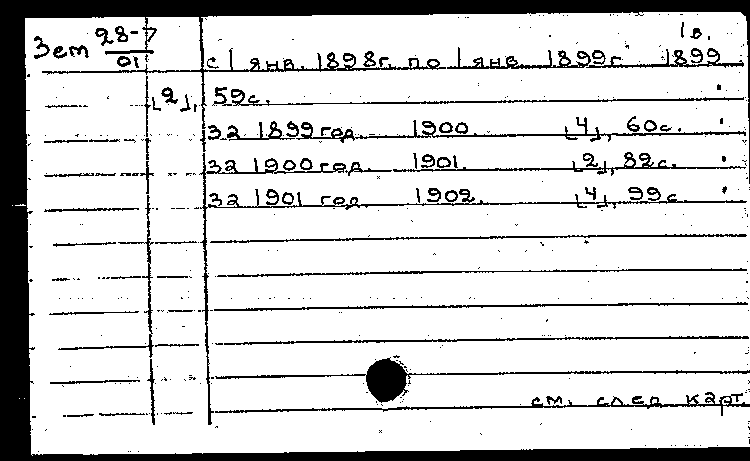 1в.
Зет 28-7/01 с 1 янв. 1898г. по 1 янв. 1899г 1899
[2], 59с.
за 1899 год. 1900. [4], 60с.
за 1900 год. 1901. [2], 82с.
за 1901 год. 1902. [4], 99с.
см. след карт.